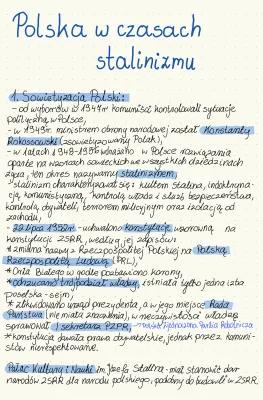 Polska w czasach
stalinizmu
1. Sowietyzacja Polski:
- od wyborów w 1947r komuniści kontrolowali sytuację
polityczną w Polsce,
- w 1949r. ministrem obrony narodowej został Konstanty
Rokossowski (zsowietyzowany Polak),
- w latach 1948-1956 wdrażano w Polsce rozwiązania
oparte na wzorcach sowieckich we wszystkich dziedzinach
życia, ten okres nazywamy stalinizmem,
- stalinizm charakteryzował się: kultem Stalina, indoktryna-
cją komunistyczną, kontrolą władz i służb bezpieczeństwa,
kontrolą obywateli, terrorem militarnym oraz izolacją od
zachodu,
- 22 lipca 1952r - uchwalono konstytucję wzorowaną na
konstytucji ZSRR, według jej zapisów:
* zmieniono nazwę z Rzeczpospolitej Polskiej na Polską
Rzeczpospolitą Ludową (PRL),
* Orła Białego w godle pozbawiono korony,
* odrzucono trójpodział władzy, istniała tylko jedna izba
poselska - sejm,
* zlikwidowano urząd prezydenta, a w jego miejsce Rada
Państwa (nie miała znaczenia), w rzeczywistości władzę
sprawował I sekretarz PZPR, → Polska Zjednoczona Partia Robotnicza
* konstytucja dawała prawa obywatelskie, jednak przez komuni-
stów nierespektowane.
Pałac Kultury i Nauki im. Józefa Stalina - miał stanowić dar
narodów ZSRR dla narodu polskiego, podobny do budowli w ZSRR.